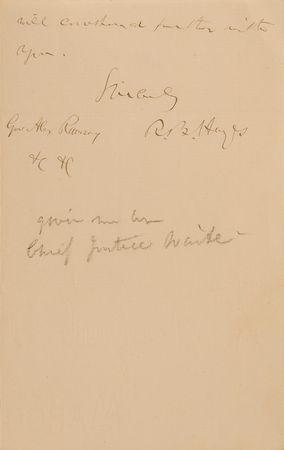 will correspond further with
you.
Sincerely
Gov Alex Ramsey R. B. Hayes
&c &c
given me by
Chief Justice Waite